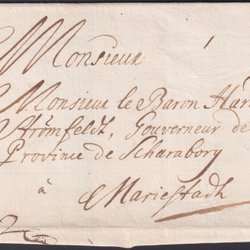 Monsieur
à
Monsieur le Baron Har
Strömfeldt, Gouverneur de
Province de Scharaborg
à
Mariestadt